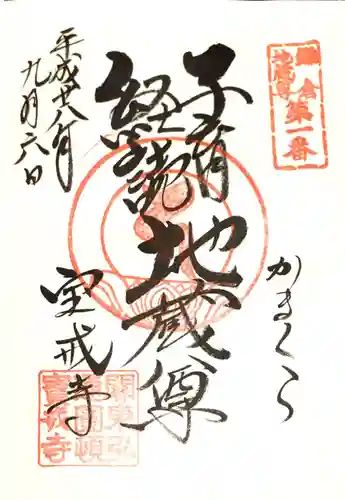 鎌倉
地蔵尊
第一番
かまくら
子育
経読
地蔵尊
宝戒寺
平成十八年
九月六日
寶戒寺